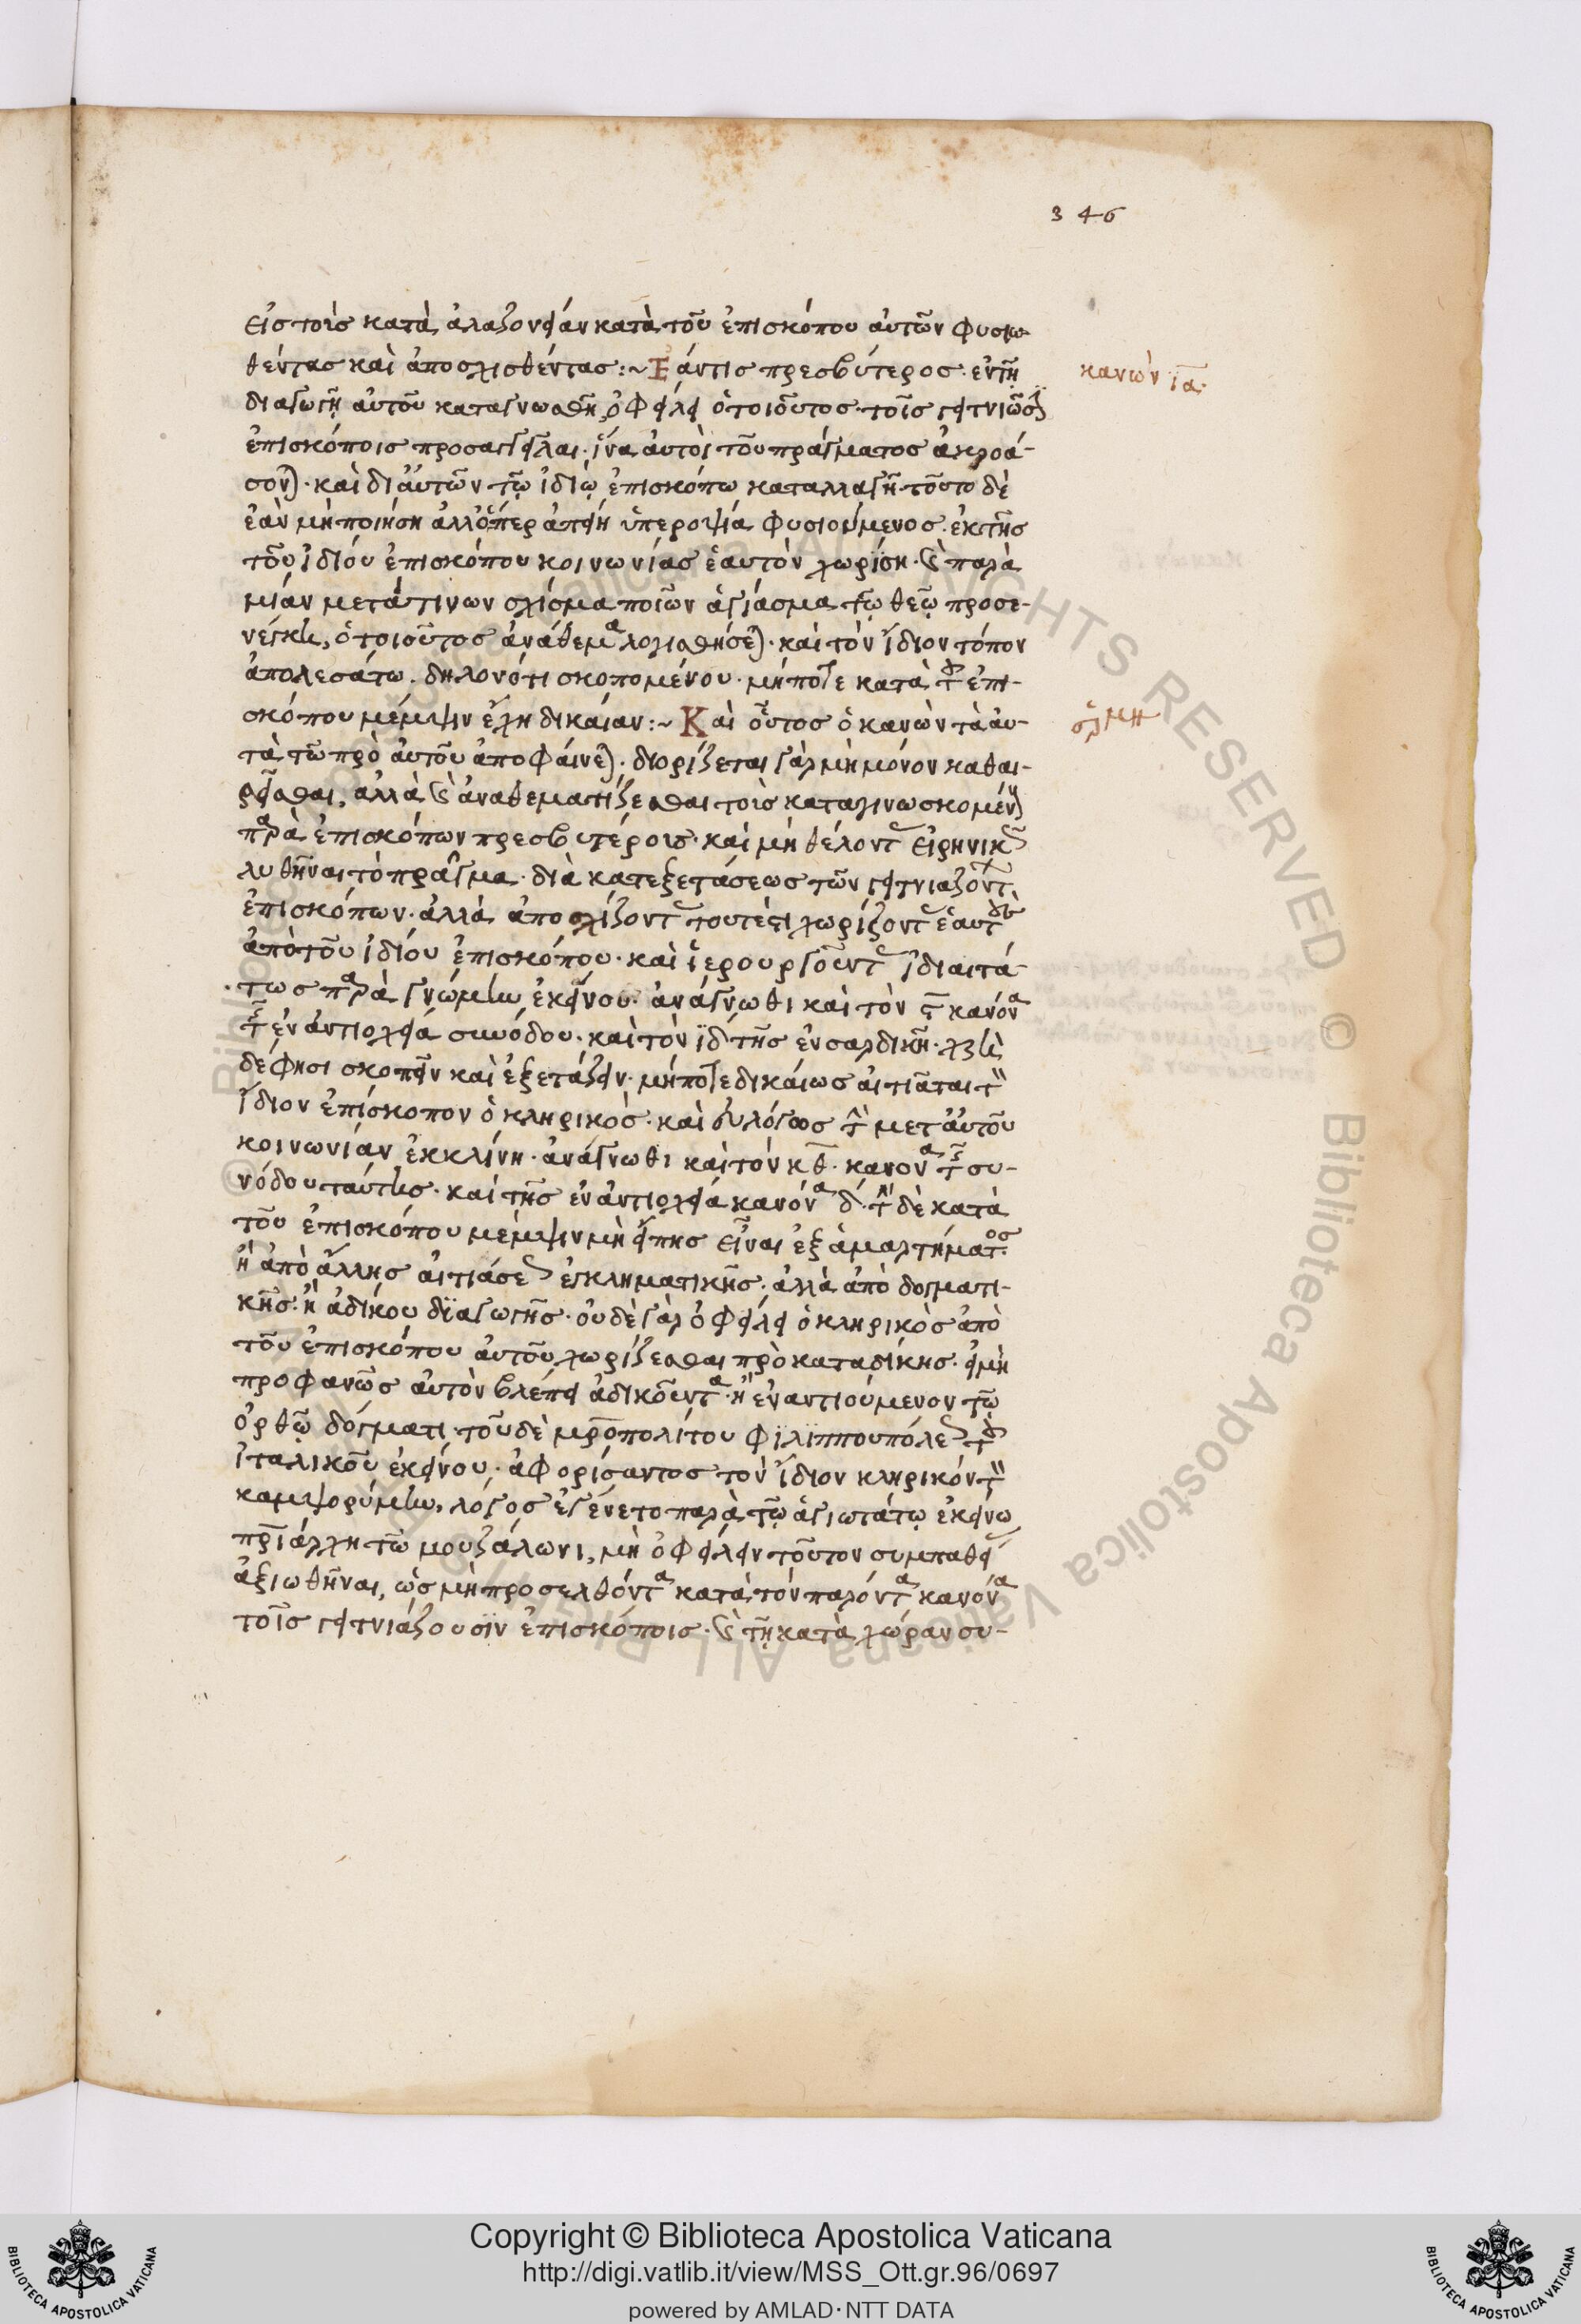 346
εἰς τοὺς κατὰ ἀλαζονείαν κατὰ τοῦ ἐπισκόπου αὐτῶν φυσιω
θέντας καὶ ἀποσχισθέντας :~ Ἐάντις πρεσβύτερος· ἐν τῇ
κανὼν ια·
διαγωγῇ αὐτοῦ καταγνωσθῇ, ὀφείλει ὁ τοιοῦτος· τοῖς γειτνιῶσιν
ἐπισκόποις προσαγγεῖλαι· ἵνα αὐτοὶ τοῦ πράγματος ἀκροά-
σονται· καὶ δι' αὐτῶν τῷ ἰδίῳ ἐπισκόπω καταλλαγῇ· τοῦτο δὲ
ἐὰν μὴ ποιήση ἀλλ' ὅπερ ἀπείη ὑπεροψία φυσιούμενος· ἐκ τῆς
τοῦ ἰδίου ἐπισκόπου κοινωνίας ἑαυτὸν χωρίση· καὶ παρὰ
μίαν μετά τινων σχίσμα ποιῶν ἁγίασμα τῷ θεῷ προσε-
νέγκη, ὁ τοιοῦτος ἀνάθεμα λογισθήσεται· καὶ τὸν ἴδιον τόπον
ἀπολεσάτω· δηλονότι σκοπομένου· μήποτε κατὰ τοῦ ἐπι-
σκόπου μέμψιν ἔχη δικαίαν :~ Καὶ οὗτος ὁ κανὼν τὰ αὐ-
τὰ τῶ πρὸ αὐτοῦ ἀποφαίνεται· διορίζεται γὰρ μὴ μόνον καθαι-
ρεῖσθαι, ἀλλὰ καὶ ἀναθεματίζεσθαι τοὺς καταγινωσκομένους
παρὰ ἐπισκόπων πρεσβυτέροις· καὶ μὴ θέλοντας εἰρηνικῶς
λυθῆναι τὸ πρᾶγμα· διὰ κατεξετάσεως τῶν γειτνιαζόντων
ἐπισκόπων· ἀλλὰ ἀποσχίζοντας τουτέστι χωρίζοντας ἑαυτοὺς
ἀπὸ τοῦ ἰδίου ἐπισκόπου· καὶ ἱερουργοῦντας ἰδιαιτά-
τως παρὰ γνώμην ἐκείνου· ἀνάγνωθι καὶ τὸν ϛ κανόνα
τῆς ἐν ἀντιοχεία συνόδου· καὶ τὸν ιδ τῆς ἐν σαρδικῇ· χρὴ
δέ φησι σκοπεῖν καὶ ἐξετάζειν· μήποτε δικαίως αἰτιᾶται τὸν
ἴδιον ἐπίσκοπον ὁ κληρικὸς· καὶ εὐλόγως τὴν μετ' αὐτοῦ
κοινωνίαν ἐκκλίνη· ἀνάγνωθι καὶ τὸν κθ· κανόνα τῆς συ-
νόδου ταύτης· καὶ τῆς ἐν ἀντιοχεία κανόνα δ· τὴν δὲ κατὰ
τοῦ ἐπισκόπου μέμψιν μὴ εἴπης εἶναι ἐξ ἁμαρτήματος
ἢ ἀπὸ ἄλλης αἰτιάσεως ἐγκληματικῆς· ἀλλὰ ἀπὸ δογματι-
κῆς· ἢ ἀδίκου διαγωγῆς· οὐδὲ γὰρ ὀφείλει ὁ κληρικὸς ἀπὸ
τοῦ ἐπισκόπου αὐτοῦ χωρίζεσθαι πρὸ καταδίκης· εἰ μὴ
προφανῶς αὐτὸν βλέπει ἀδικοῦντα· ἢ ἐναντιούμενον τῶ
ὀρθῷ δόγματι· τοῦ δὲ μροπολίτου φιλιππουπόλεως τοῦ
ἰταλικοῦ ἐκείνου· ἀφορίσαντος τὸν ἴδιον κληρικόν τὸν
καμψορύμην, λόγος ἐγένετο παρὰ τῷ ἁγιωτάτῳ ἐκείνω
πριάρχη τῶ μουζάλωνι, μὴ ὀφείλειν τοῦτον συμπαθείας
ἀξιωθῆναι, ὡς μὴ προσελθόντα κατὰ τὸν παρόντα κανόνα
τοῖς γειτνιάζουσιν ἐπισκόποις· καὶ τῇ κατὰ χώραν συ-
Copyright © Biblioteca Apostolica Vaticana
http://digi.vatlib.it/view/MSS_Ott.gr.96/0697
powered by AMLAD·NTT DATA